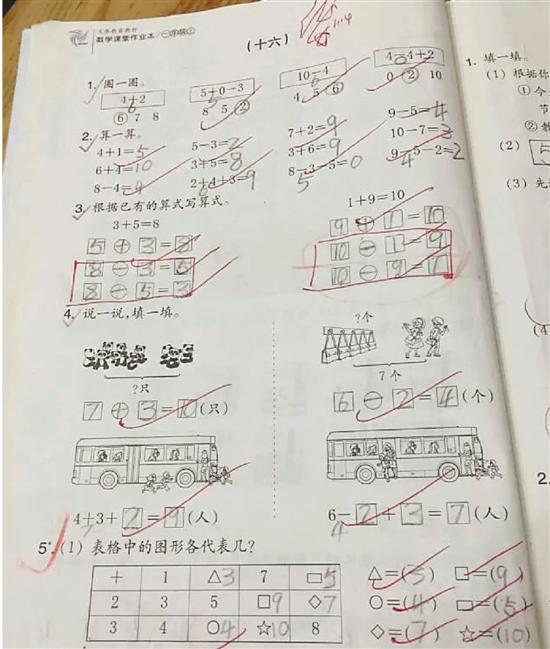 义务教育教材
数学课堂作业本/一年级①
(十六)
1. 圈一圈。
4+2 5+0-3 10-4 4-4+2
6 5 6 0
6 7 8 8 5 2 4 5 6 0 2 10
2. 算一算。
4+1=5 5-3=2 7+2=9 9-5=4
6+4=10 3+5=8 3+6=9 10-7=3
8-4=4 2+4+3=9 8-3-5=0 9-5-2=2
6 5 4
3. 根据已有的算式写算式。
3+5=8 1+9=10
5+3=8 9+1=10
8-3=5 10-1=9
8-5=3 10-9=1
4. 说一说,填一填。
?个
?只 7个
7+3=10(只) 6-2=4(个)
4+3+2=9(人) 6-2+3=7(人)
7 4
5*. (1) 表格中的图形各代表几?
+ 1 △3 7 □5
2 3 5 □9 ◇7
3 4 ○4 ☆10 8
△=(3) □=(9)
○=(4) □=(5)
◇=(7) ☆=(10)
1. 填一填。
(1) 根据你
① 今
节
② 教
(2) 5
(3) 先
2.